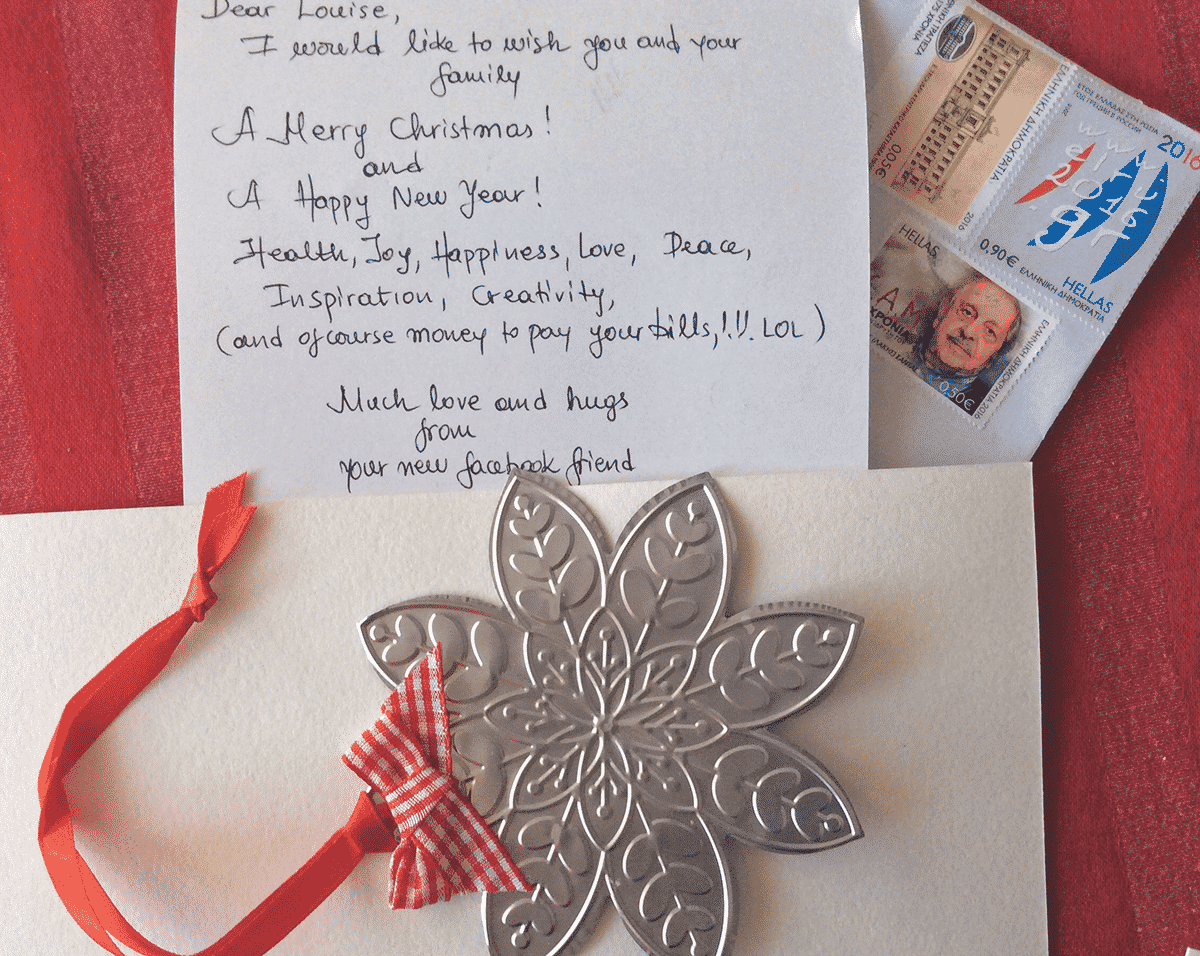 Dear Louise,
I would like to wish you and your
family
A Merry Christmas!
and
A Happy New Year!
Health, Joy, Happiness, Love, Peace,
Inspiration, Creativity,
(and of course money to pay your bills,!!!. LOL)
Much love and hugs
from
your new facebook friend
ΤΡΑΠΕΖΑ
ΧΡΟΝΙΑ
0,05€
ΕΛΛΗΝΙΚΗ ΔΗΜΟΚΡΑΤΙΑ
2016
ΕΤΟΣ ΕΛΛΑΔΑΣ ΣΤΗ ΡΩΣΙΑ
ГОД ГРЕЦИИ В РОССИИ
2016
0,90€
HELLAS
ΕΛΛΗΝΙΚΗ ΔΗΜΟΚΡΑΤΙΑ
HELLAS
ΧΡΟΝΙΑ
0,50€
ΕΛΛΗΝΙΚΗ ΔΗΜΟΚΡΑΤΙΑ 2016